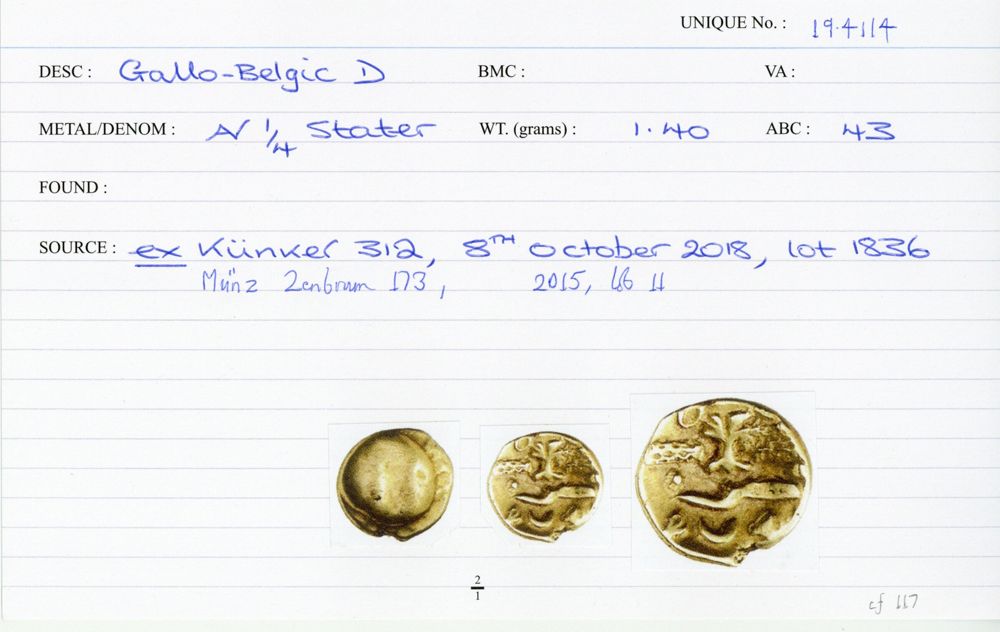 UNIQUE No. : 19.4114
DESC : Gallo-Belgic D BMC : VA :
METAL/DENOM : AV 1/4 Stater WT. (grams) : 1.40 ABC : 43
FOUND :
SOURCE : ex Künker 312, 8TH October 2018, lot 1836
Münz Zentrum 173, 2015, 11
2/1
cf 117